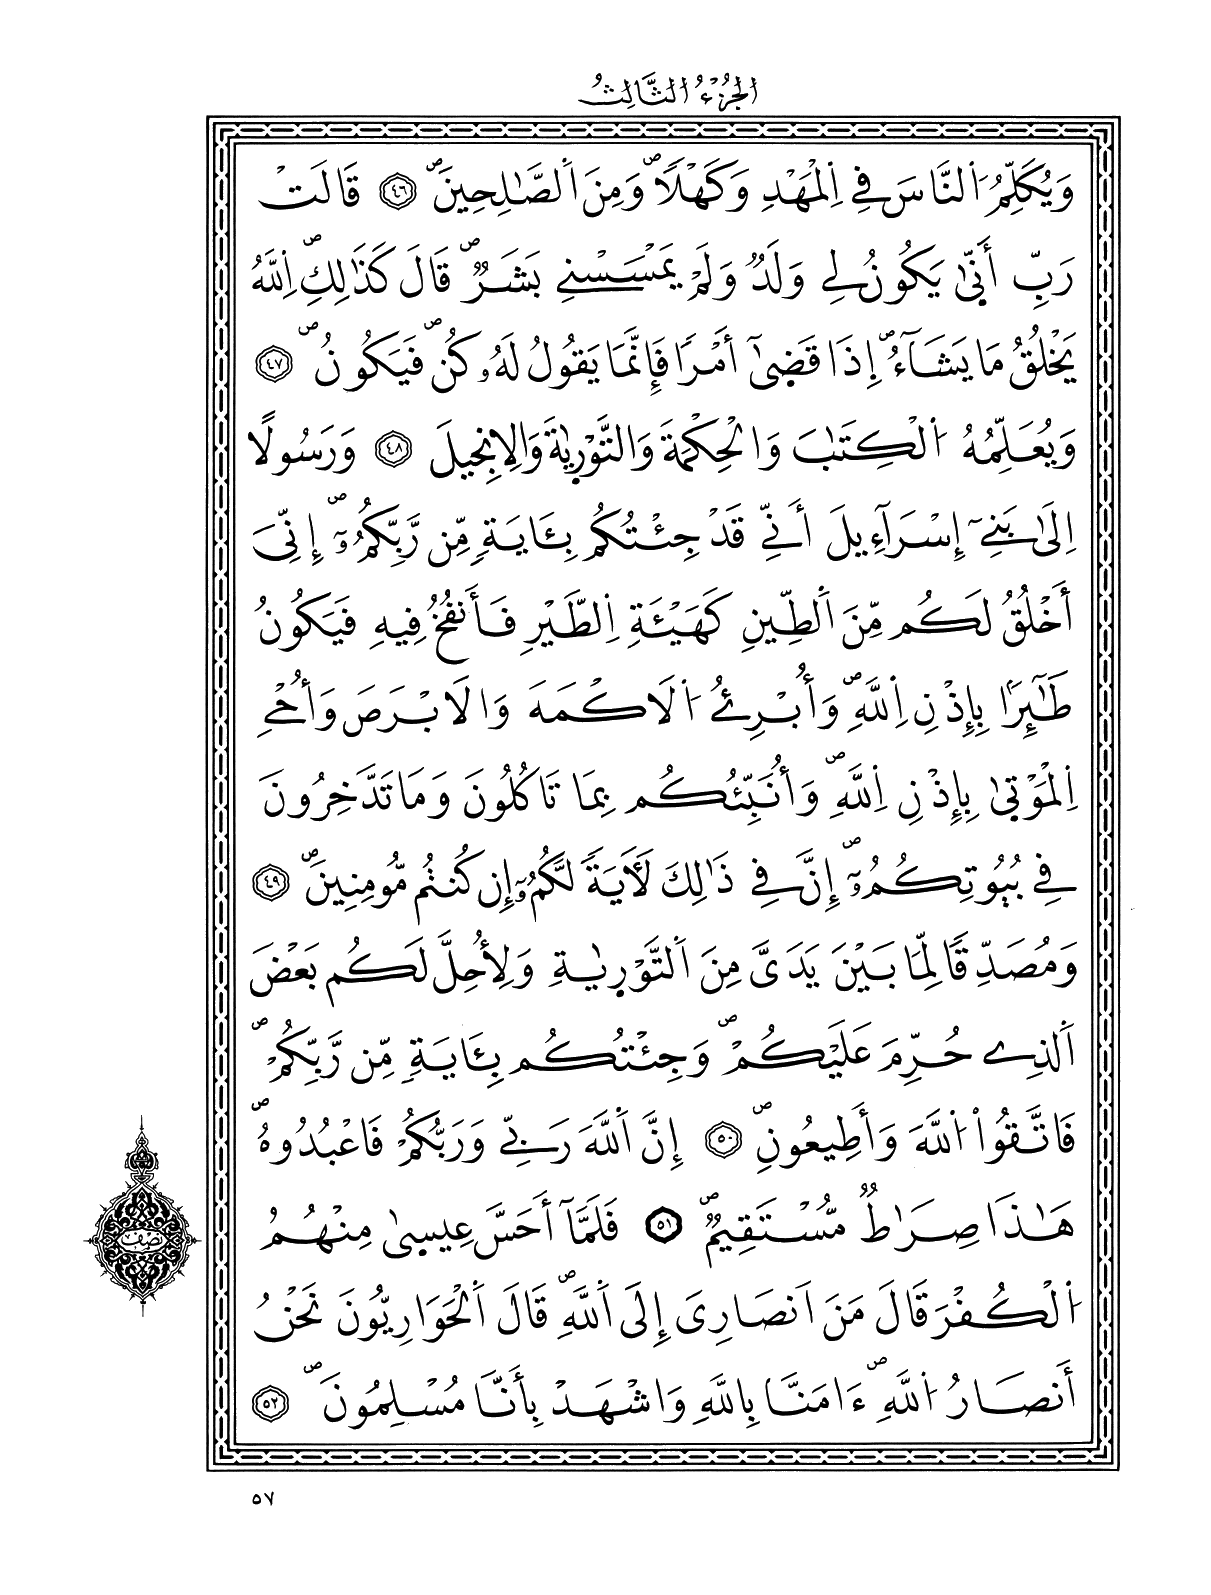 الجُزْءُ الثَّالِثُ
وَيُكَلِّمُ اُ۬لنَّاسَ فِے اِ۬لْمَهْدِ وَكَهْلاٗۖ وَمِنَ اَ۬لصَّٰلِحِينَۖ ٤٦ قَالَتْ
رَبِّ أَنّٰي يَكُونُ لِے وَلَدٞ وَلَمْ يَمْسَسْنِے بَشَرٞۖ قَالَ كَذَٰلِكِۖ اِ۬للَّهُ
يَخْلُقُ مَا يَشَآءُۖ اِ۪ذَا قَضٰىٓ أَمْراٗ فَإِنَّمَا يَقُولُ لَهُۥ كُنۖ فَيَكُونُۖ ٤٧
وَيُعَلِّمُهُ اُ۬لْكِتَٰبَ وَالْحِكْمَةَ وَالتَّوْر۪يٰةَ وَالِانجِيلَ ٤٨ وَرَسُولاً
اِلَىٰ بَنِےٓ إِسْرَآءِيلَ أَنِّے قَدْ جِئْتُكُم بِـَٔايَةٖ مِّن رَّبِّكُمُۥٓۖ إِنِّيَ
أَخْلُقُ لَكُم مِّنَ اَ۬لطِّينِ كَهَيْـَٔةِ اِ۬لطَّيْرِ فَأَنفُخُ فِيهِ فَيَكُونُ
طَٰٓئِراَۢ بِإِذْنِ اِ۬للَّهِۖ وَأُبْرِئُ اُ۬لَاكْمَهَ وَالَابْرَصَ وَأُحْيِ
اِ۬لْمَوْتٰي بِإِذْنِ اِ۬للَّهِۖ وَأُنَبِّئُكُم بِمَا تَاكُلُونَ وَمَا تَدَّخِرُونَ
فِے بُيُوتِكُمُۥٓۖ إِنَّ فِے ذَٰلِكَ لَأٓيَةٗ لَّكُمُۥٓ إِن كُنتُم مُّومِنِينَۖ ٤٩
وَمُصَدِّقاٗ لِّمَا بَيْنَ يَدَيَّ مِنَ اَ۬لتَّوْر۪يٰةِ وَلِأُحِلَّ لَكُم بَعْضَ
اَ۬لذِے حُرِّمَ عَلَيْكُمْۖ وَجِئْتُكُم بِـَٔايَةٖ مِّن رَّبِّكُمْۖ
فَاتَّقُواْ اُ۬للَّهَ وَأَطِيعُونِۖ ٥٠ إِنَّ اَ۬للَّهَ رَبِّے وَرَبُّكُمْ فَاعْبُدُوهُۖ
هَٰذَا صِرَٰطٞ مُّسْتَقِيمٞۖ ٥١ فَلَمَّآ أَحَسَّ عِيسٰي مِنْهُمُ
اُ۬لْكُفْرَ قَالَ مَنَ اَنصَارِيَ إِلَى اَ۬للَّهِۖ قَالَ اَ۬لْحَوَارِيُّونَ نَحْنُ
أَنصَارُ اُ۬للَّهِۖ ءَامَنَّا بِاللَّهِ وَاشْهَدْ بِأَنَّا مُسْلِمُونَۖ ٥٢
نصف
٥٧